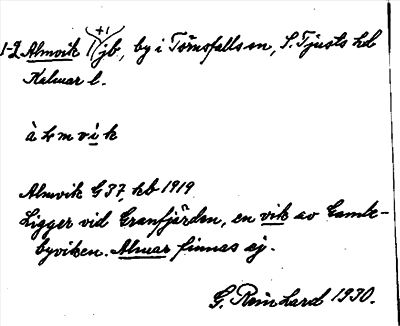 +1
1-2 Almvik 1/jb, by i Törnsfalls sn, S. Tjusts hd
Kalmar l.
Almvik G 37, kb 1919
Ligger vid Granfjärden, en vik av Gamle-
byviken. Almar finnas ej.
G. Reinhard 1930.